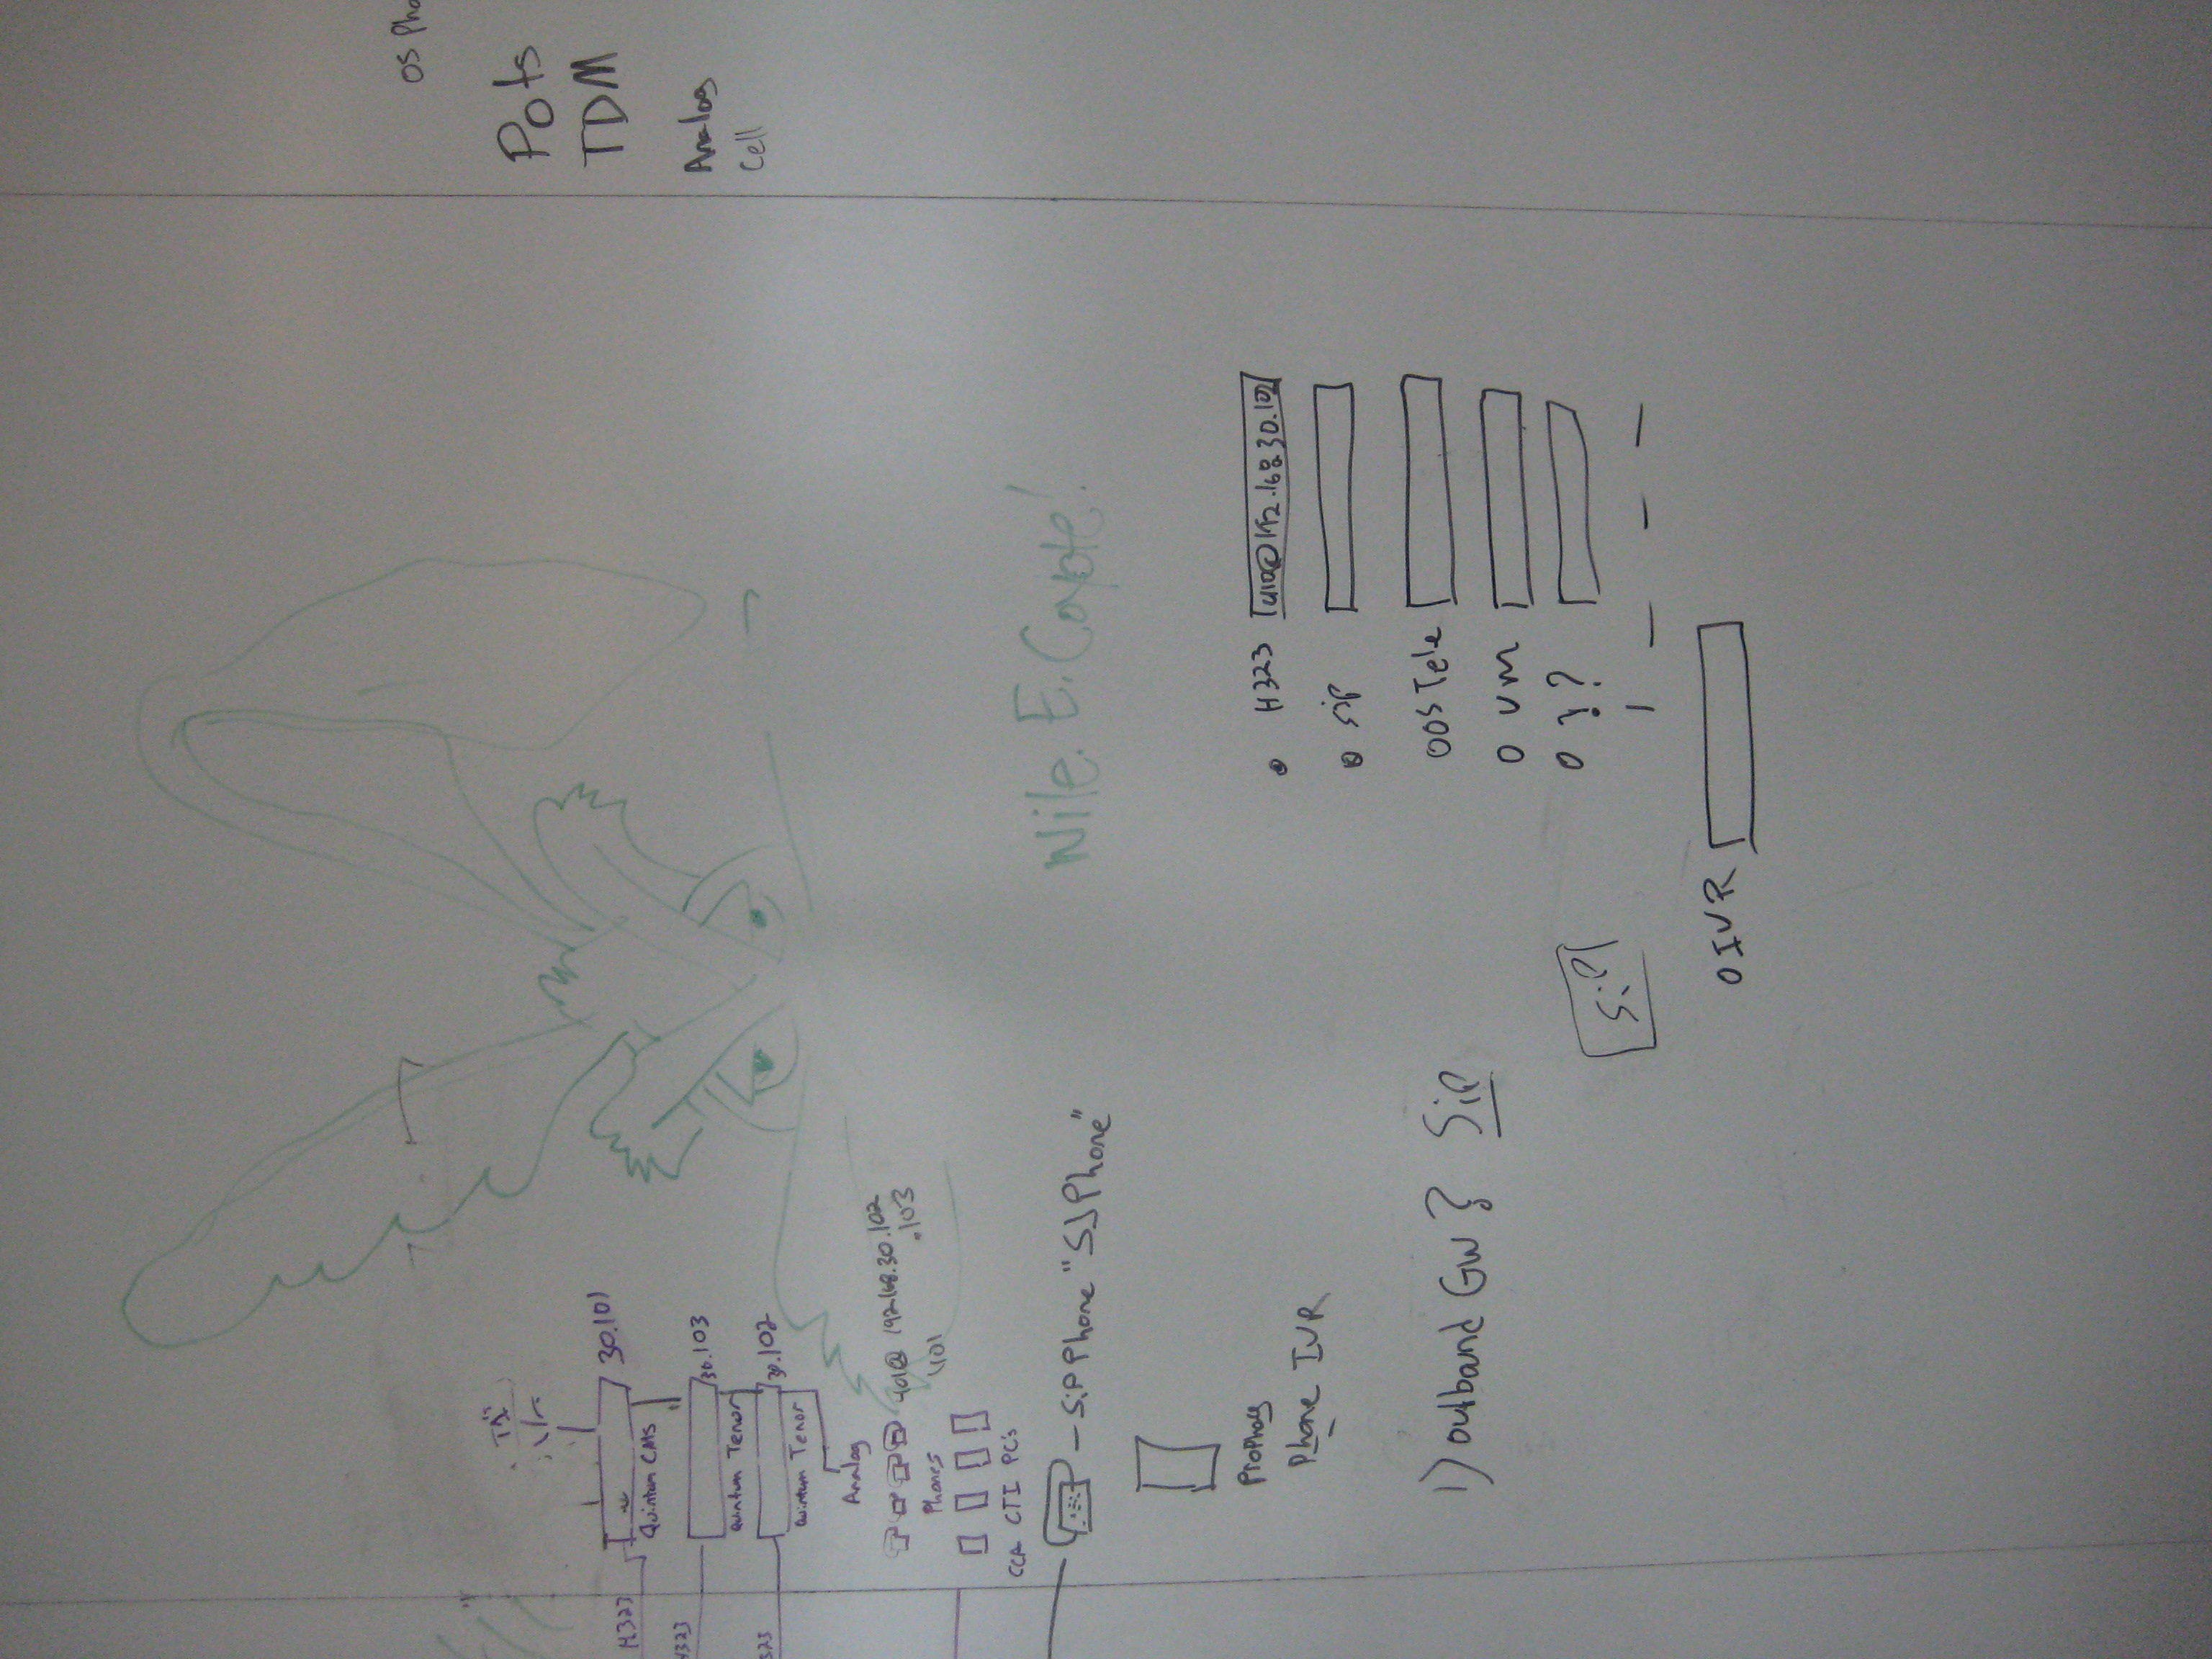 OS Pho
Pots
TDM
Analog
Cell
30.101
Quintum CMS
H323
30.103
Quintum Tenor
H323
30.102
Quintum Tenor
323
Analog
401@ 192.168.30.102
.103
401
Phones
CCA CTI PC's
- SiP Phone "SJ Phone"
Phone IVR
Nile. E. Coyote!
H323 410@192.168.30.102
SiP
OS Tele
VM
??
SiP
IVR
1) outband GW } SiP